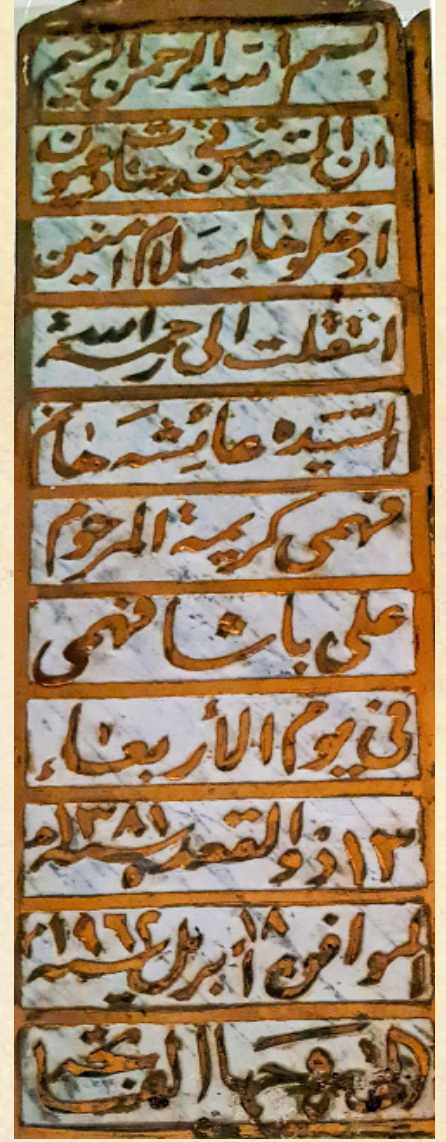 بسم الله الرحمن الرحيم
ان المتقين في جنات وعيون
ادخلوها بسلام امنين
انتقلت الى رحمة الله
السيدة عائشه خانم
فهمى كريمة المرحوم
على باشا فهمى
في يوم الأربعاء
١٣ ذو القعده سنة ١٣٨١هـ
الموافق ١٨ أبريل سنة ١٩٦٢م
الفاتحة